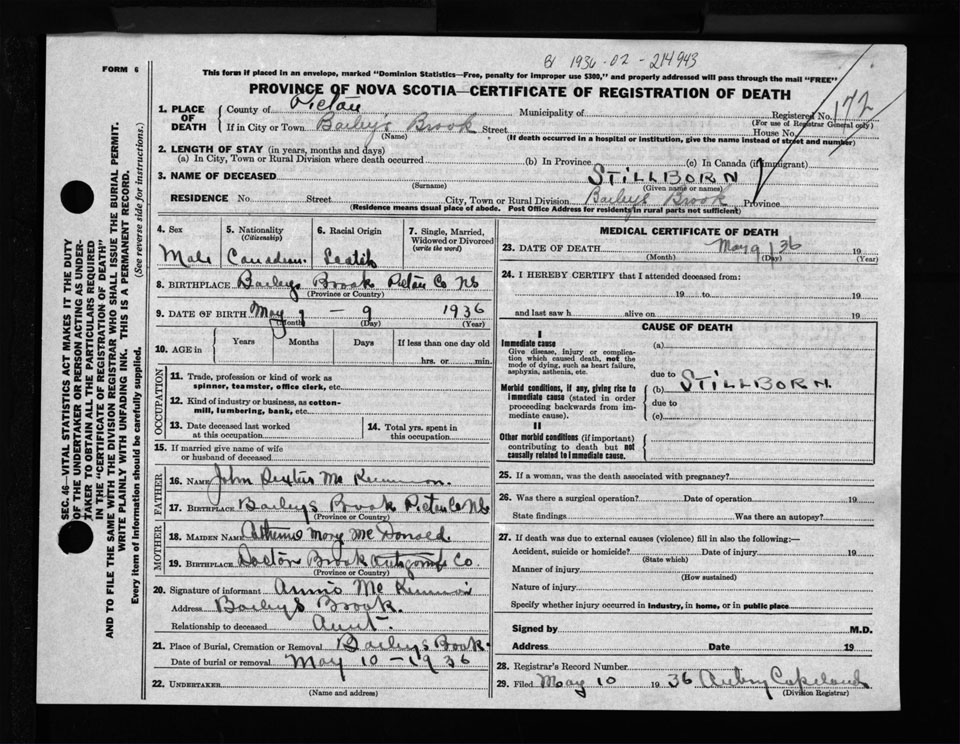 B 1936-02-214943
FORM 6
This form if placed in an envelope, marked "Dominion Statistics—Free, penalty for improper use $300," and properly addressed will pass through the mail "FREE"
PROVINCE OF NOVA SCOTIA—CERTIFICATE OF REGISTRATION OF DEATH
1. PLACE OF DEATH
County of Pictou Municipality of Registered No. 172
(For use of Registrar General only)
If in City or Town Baileys Brook Street House No.
(Name) (If death occurred in a hospital or institution, give the name instead of street and number)
2. LENGTH OF STAY (in years, months and days)
(a) In City, Town or Rural Division where death occurred (b) In Province (c) In Canada (if immigrant)
3. NAME OF DECEASED STILLBORN
(Surname) (Given name or names)
RESIDENCE No. Street City, Town or Rural Division Baileys Brook Province
(Residence means usual place of abode. Post Office Address for residents in rural parts not sufficient)
4. Sex 5. Nationality (Citizenship) 6. Racial Origin 7. Single, Married, Widowed or Divorced (write the word)
Male Canadian
8. BIRTHPLACE Baileys Brook Pictou Co NS
(Province or Country)
9. DATE OF BIRTH May 9 1936
(Month) (Day) (Year)
10. AGE in Years Months Days If less than one day old
hrs. or min.
OCCUPATION
11. Trade, profession or kind of work as spinner, teamster, office clerk, etc.
12. Kind of industry or business, as cotton-mill, lumbering, bank, etc.
13. Date deceased last worked at this occupation 14. Total yrs. spent in this occupation
15. If married give name of wife or husband of deceased
FATHER
16. NAME John Mc Kinnon
17. BIRTHPLACE Baileys Brook Pictou Co NS
(Province or Country)
MOTHER
18. MAIDEN NAME Mary Mc Donald
19. BIRTHPLACE Brook Co.
(Province or Country)
20. Signature of informant Annie Mc Kinnon
Address Baileys Brook.
Relationship to deceased Aunt
21. Place of Burial, Cremation or Removal Baileys Brook
Date of burial or removal May 10-1936
22. UNDERTAKER
(Name and address)
MEDICAL CERTIFICATE OF DEATH
23. DATE OF DEATH May 9 / 36 19
(Month) (Day) (Year)
24. I HEREBY CERTIFY that I attended deceased from:
19 to 19
and last saw h alive on 19
CAUSE OF DEATH
I
Immediate cause (a)
Give disease, injury or complication which caused death, not the mode of dying, such as heart failure, asphyxia, asthenia, etc.
due to
Morbid conditions, if any, giving rise to immediate cause (stated in order proceeding backwards from immediate cause).
(b) STILLBORN.
due to
(c)
II
Other morbid conditions (if important) contributing to death but not causally related to immediate cause.
25. If a woman, was the death associated with pregnancy?
26. Was there a surgical operation? Date of operation 19
State findings Was there an autopsy?
27. If death was due to external causes (violence) fill in also the following:—
Accident, suicide or homicide? Date of injury 19
(State which)
Manner of injury
(How sustained)
Nature of injury
Specify whether injury occurred in industry, in home, or in public place
Signed by M.D.
Address Date 19
28. Registrar's Record Number
29. Filed May 10 1936 Aubry Copeland
(Division Registrar)
SEC. 46—VITAL STATISTICS ACT MAKES IT THE DUTY
OF THE UNDERTAKER OR PERSON ACTING AS UNDER-
TAKER TO OBTAIN ALL THE PARTICULARS REQUIRED
IN THE "CERTIFICATE OF REGISTRATION OF DEATH"
AND TO FILE THE SAME WITH THE DIVISION REGISTRAR WHO SHALL ISSUE THE BURIAL PERMIT.
WRITE PLAINLY WITH UNFADING INK. THIS IS A PERMANENT RECORD.
Every item of information should be carefully supplied. (See reverse side for instructions.)